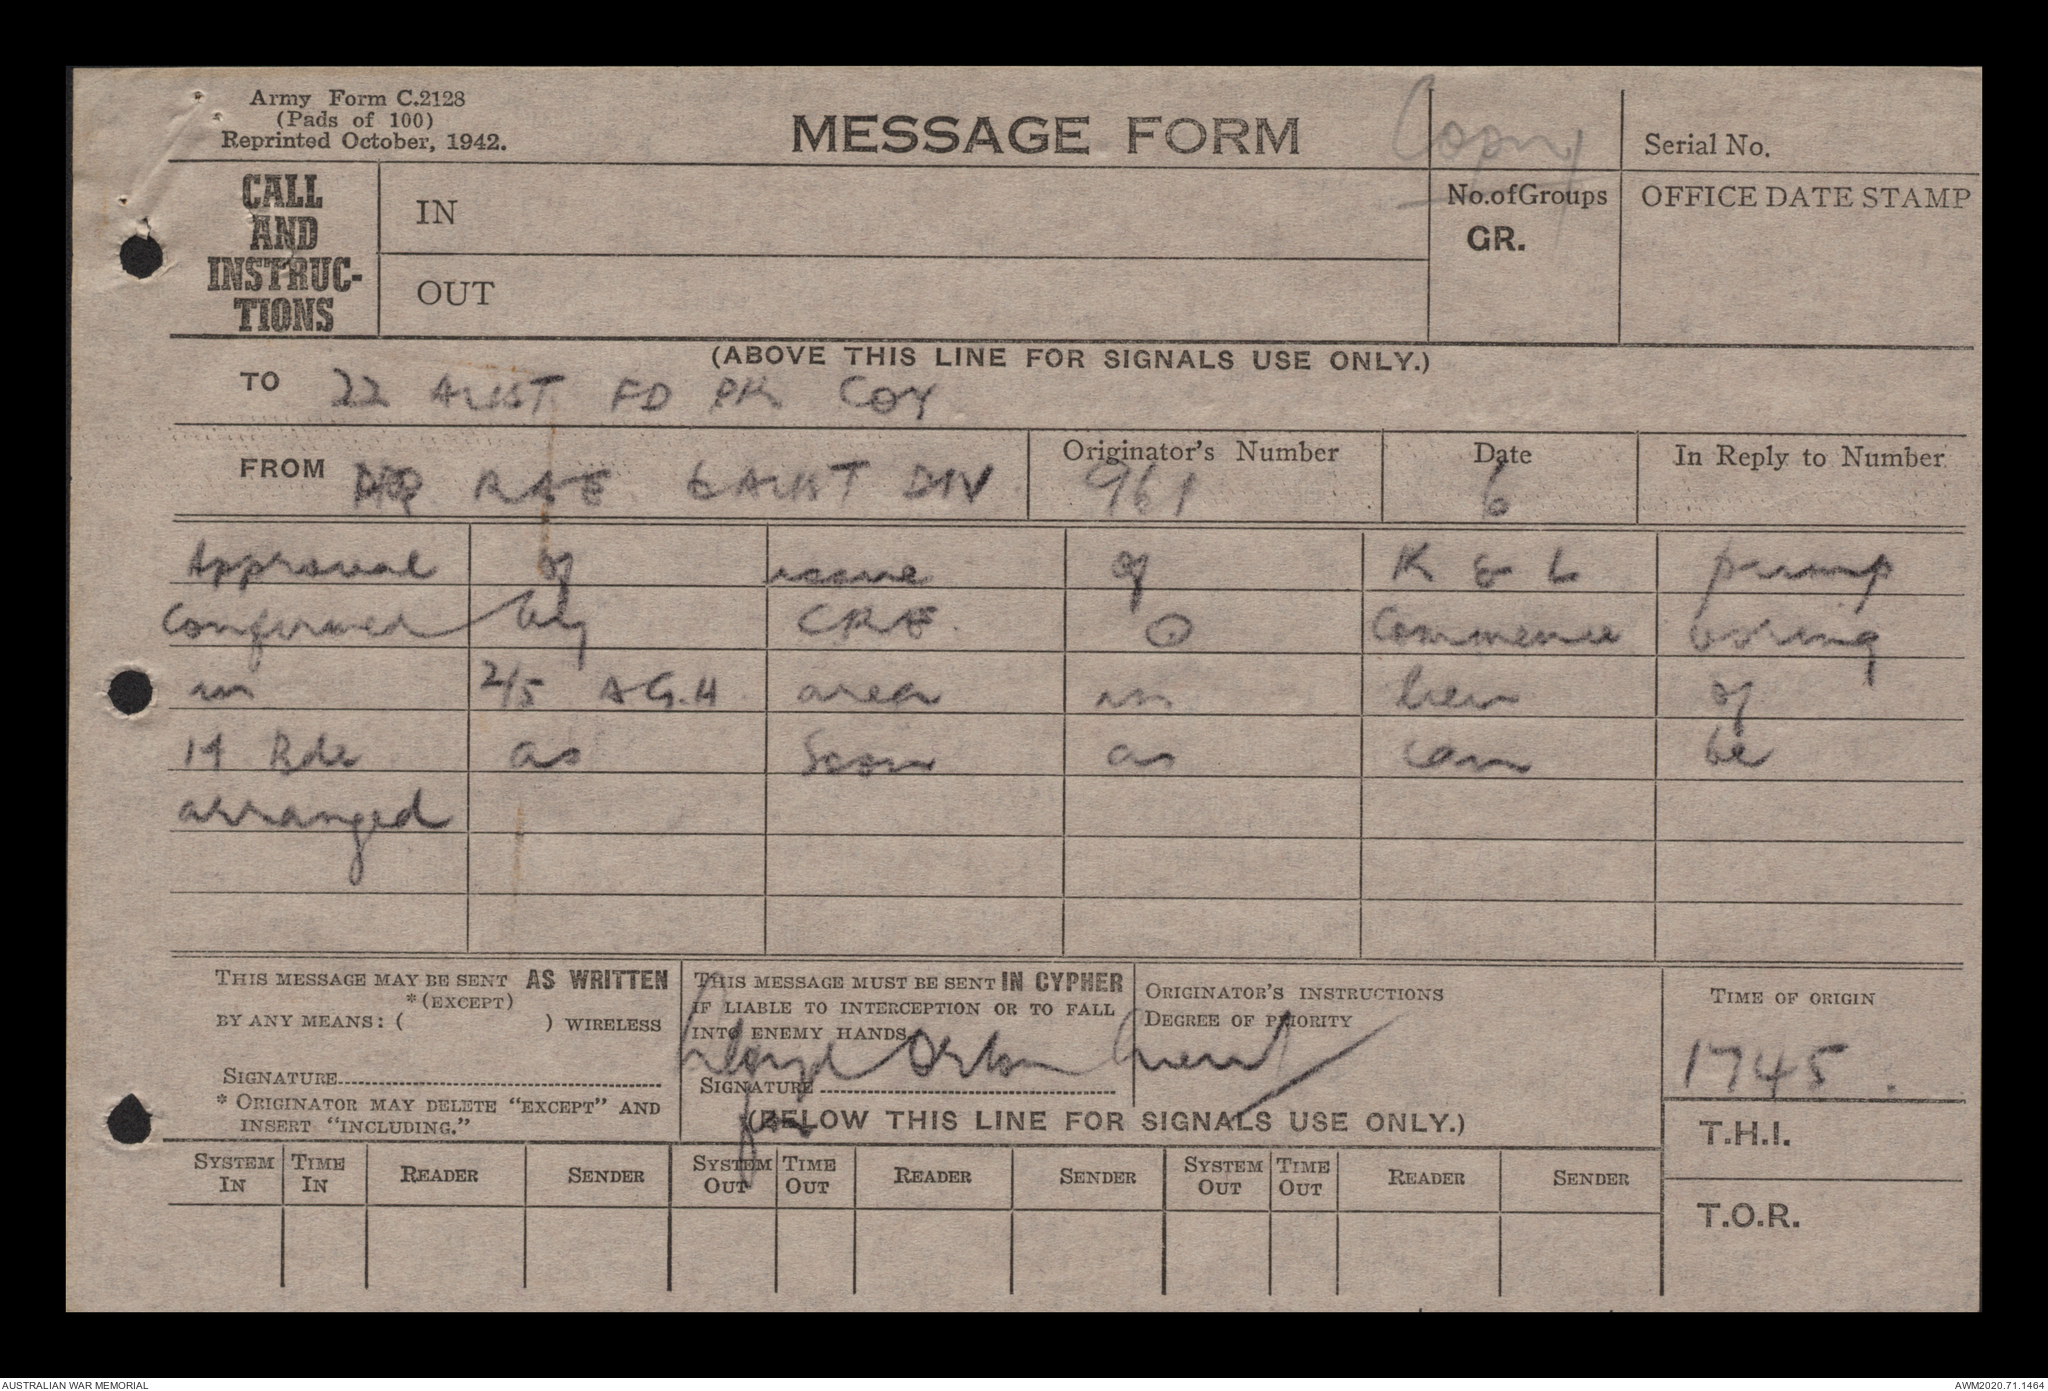 Army Form C.2128
(Pads of 100)
Reprinted October, 1942.
MESSAGE FORM
Copy
Serial No.
CALL
AND
INSTRUC-
TIONS
IN
OUT
No. of Groups
GR.
OFFICE DATE STAMP
(ABOVE THIS LINE FOR SIGNALS USE ONLY.)
TO 22 AUST FD PK COY
FROM HQ RAE 6 AUST DIV
Originator's Number
961
Date
6
In Reply to Number
Approval of issue of K & L pump
confirmed by CRE. O Commence boring
in 2/5 A.G.H area in lieu of
14 Bde as soon as can be
arranged
THIS MESSAGE MAY BE SENT AS WRITTEN
*(EXCEPT)
BY ANY MEANS: ( ) WIRELESS
SIGNATURE
* ORIGINATOR MAY DELETE "EXCEPT" AND
INSERT "INCLUDING."
THIS MESSAGE MUST BE SENT IN CYPHER
IF LIABLE TO INTERCEPTION OR TO FALL
INTO ENEMY HANDS.
SIGNATURE
for
ORIGINATOR'S INSTRUCTIONS
DEGREE OF PRIORITY
TIME OF ORIGIN
1745.
(BELOW THIS LINE FOR SIGNALS USE ONLY.)
T.H.I.
T.O.R.
SYSTEM IN TIME IN READER SENDER SYSTEM OUT TIME OUT READER SENDER SYSTEM OUT TIME OUT READER SENDER
AUSTRALIAN WAR MEMORIAL
AWM2020.71.1464